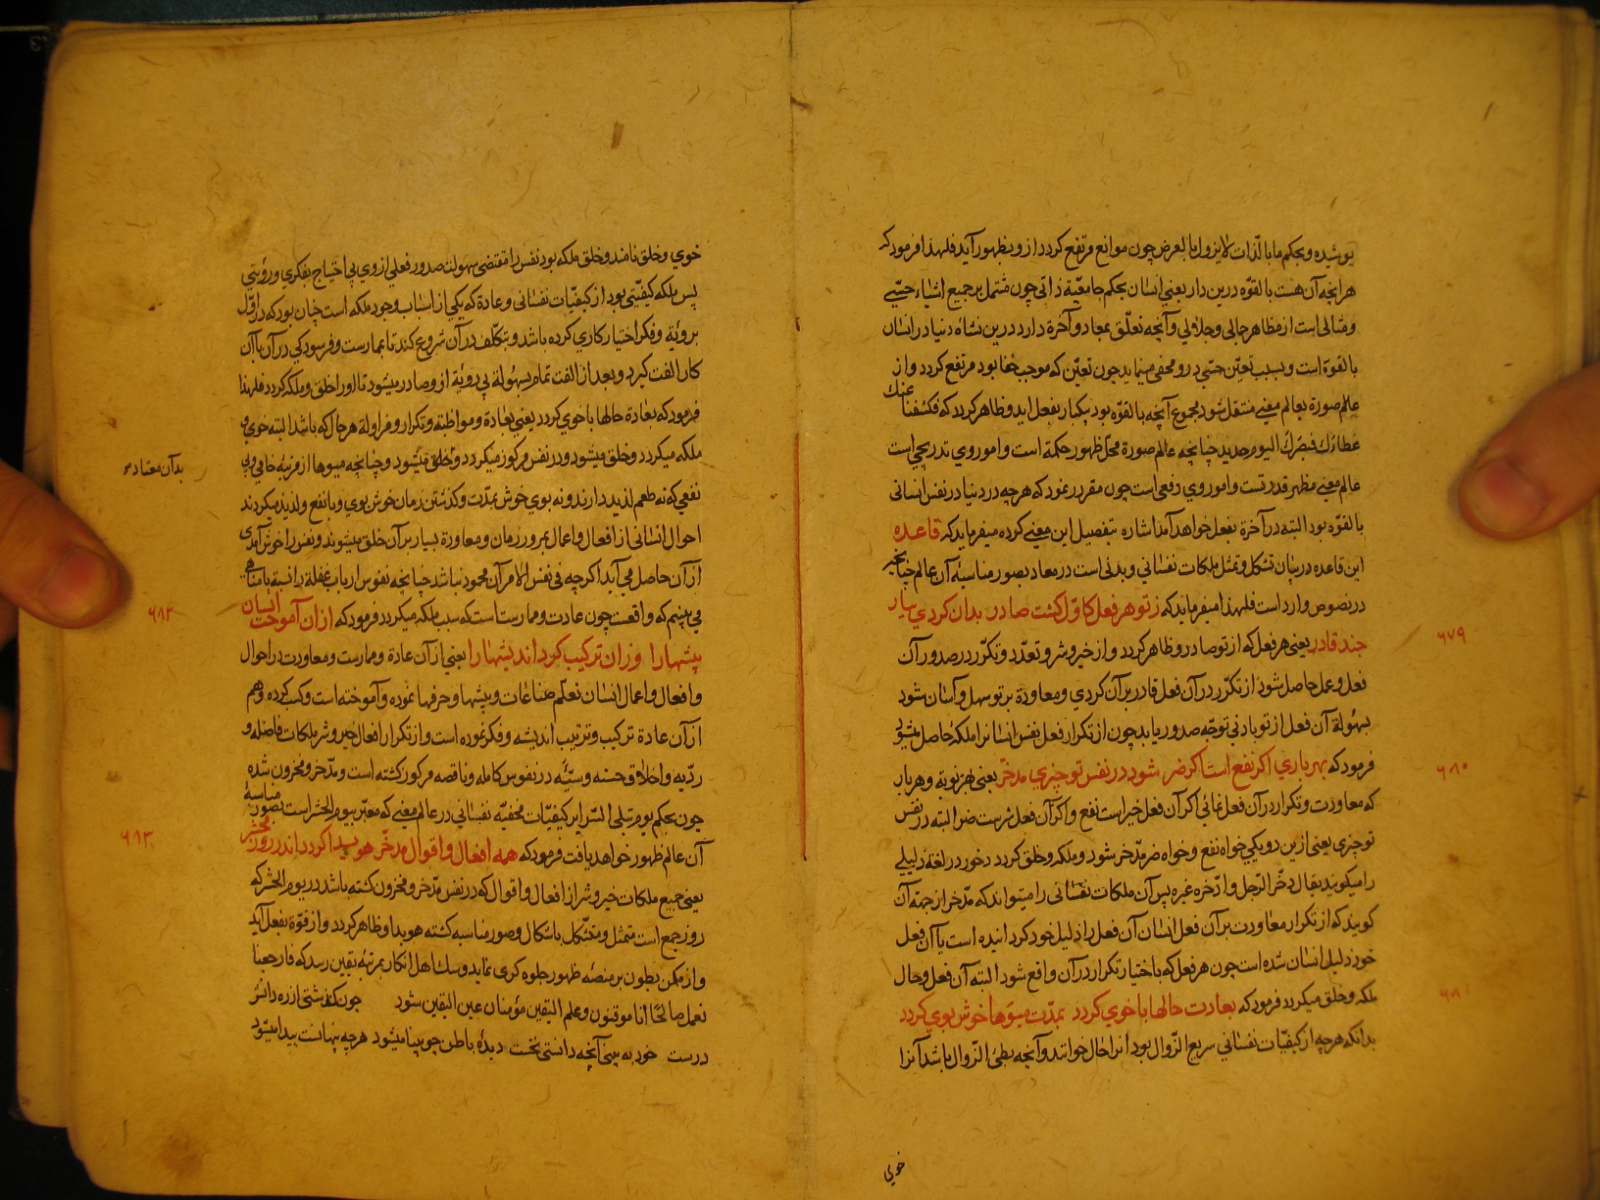 پوشیده و بحکم ما بالذات لایزول بالعرض چون موانع مرتفع کردد ازو بظهور آید فلهذا فرمود که
هر آنچه آن هست بالقوه درین دار یعنی انسان بحکم جامعیة ذاتی چون مشتمل بر جمیع اشیاء حسّی
و مثالی است از مظاهر جمالی و جلالی و آنچه تعلّق بمعاد و آخرة دارد درین نشاه دنیا در انسان
بالقوة است و بسبب تعیّن حسّی درو مخفی مینماید چون تعیّن که موجب خفا بود مرتفع کردد و از
عالم صورة بعالم معنی منتقل شود مجموع آنچه بالقوه بود بیکبار بفعل اید و ظاهر کردد که فکشفنا عنک
غطاءک فبصرک الیوم حدید چنانچه عالم صورة محل ظهور حکمة است و امور وی تدریجی است
عالم معنی مظهر قدرتست و امور وی دفعی است چون مقرر نمود که هرچه در دنیا در نفس انسانی
بالقوه بود البته در آخرة بفعل خواهد آمد اشاره بتفصیل این معنی کرده میفرماید که قاعده
این قاعده در بیان تشکل و تمثل ملکات نفسانی و بدنی است در معاد بصور مناسبهٔ آن عالم چنانچه
در نصوص وارد است فلهذا میفرماید که ز تو هر فعل کاوّل کشت صادر بدان کردی بباری
چند قادر یعنی هر فعل که از تو صادر و ظاهر کردد و از خیر و شر و تعدّد و تکرّر در صدور آن
فعل و عمل حاصل شود از تکرّر در آن فعل قادر بر آن کردی و معاودة بر تو سهل و آسان شود
بسهولة آن فعل از تو بادنی توجّه صدور یابد چون از تکرار فعل نفس انسانرا ملکهٔ حاصل میشود
فرمود که بهر باری اکر نفع است اکر ضر شود در نفس تو چیزی مدخّر یعنی بهر نوبة و هر بار
که معاودت و تکرار در آن فعل نمائی اکر آن فعل خیر است نفع و اکر آن فعل شرست ضر البته در نفس
تو چیزی یعنی ازین دو یکی خواه نفع و خواه ضر مدّخر شود و ملکه و خلق کردد دخور در لغة ذلیلی
را میکویند یقال دخر الرّجل و ادّخره غیره پس آن ملکات نفسانی را میتواند که مدّخر از جهة آن
کویند که از تکرار معاودت بر آن فعل انسان آن فعل را ذلیل خود کردانیده است یا آن فعل
خود ذلیل انسان شده است چون هر فعل که باختیار تکرار در آن واقع شود البته آن فعل و حال
ملکه و خلق میکردد فرمود که بعادت حالها با خوی کردد بمدّت میوها خوش بوی کردد
بدانکه هرچه از کیفیّات نفسانی سریع الزّوال بود آنرا حال خوانند و آنچه بطئ الزّوال باشد آنرا
خوی
۶۷۹
۶۸۰
۶۸۱
خوی و خلق نامند و خلق ملکه بود نفس را مقتضی سهولت صدور فعلی از وی بی احتیاج بفکری و رؤیتی
پس ملکه کیفیّتی بود از کیفیّات نفسانی و عادة که یکی از اسباب وجود ملکه است چنان بود که در اوّل
برویّة و فکر اختیار کاری کرده باشد و بتکلّف در آن شروع کند تا بممارست و فرسودکی در آن با آن
کار الفت کیرد و بعد از الفت تمام بسهولة بی رویّة ازو صادر میشود تا او را خلق و ملکه کردد فلهذا
فرمود که بعادة حالها با خوی کردد یعنی بعادة و مواظبة و تکرار و مزاولة هر حال که باشد البته خوی و
ملکه میکردد و خلق میشود و در نفس مرکوز میکردد و خلق میشود و چنانچه میوها از مرتبهٔ خامی و بی
نفعی که نه طعم لذیذ دارند و نه بوی خوش بمدّت و کذشتن زمان خوش بوی و با نفع و لذیذ میکردند
احوال انسانی از افعال و اعمال بمرور زمان و معاودة بسیار بر آن خلق میشوند و نفس را خوش آمدی
از آن حاصل می آید اکرچه فی نفس الامر آن محمود نباشد چنانچه نفوس ارباب غفلة را نسبة با مناهی
می بینم که واقعست چون عادت و ممارست است که سبب ملکه میکردد فرمود که از ان آموخت انسان
پیشها را وزان ترکیب کرد اندیشها را یعنی از آن عادة و ممارست و معاودت در احوال
و افعال و اعمال انسان تعلّم صناعات و پیشها و حرفها نموده و آموخته است و کسب کرده و هم
از آن عادة ترکیب و ترتیب اندیشه و فکر نموده است و از تکرار افعال خیر و شر ملکات فاضله و
ردّیه و اخلاق حسنه و سیّئه در نفوس کامله و ناقصه مرکوز کشته است و مدّخر و مخزون شده
چون بحکم یوم تبلی السّرایر کیفیّات مخفیّه نفسانی در عالم معنی که معبّر بیوم الحشر است بصور مناسبهٔ
آن عالم ظهور خواهد یافت فرمود که همه افعال و اقوال مدخّر هویدا کردد اندر روز محشر
یعنی جمیع ملکات خیر و شر از افعال و اقوال که در نفس مدّخر و مخزون کشته باشد در یوم الحشر که
روز جمع است متمثل و متشکل باشکال و صور مناسبه کشته هویدا و ظاهر کردد و از قوّة بفعل آید
و از مکمن بطون بر منصّهٔ ظهور جلوه کری نماید و سک اهل انکار بمرتبهٔ یقین رسد که فارجعنا
نعمل صالحًا انا موقنون و علم الیقین مؤمنان عین الیقین شود چون کذشتی از ره دانش
درست خود به بینی آنچه دانستی نخست دیدهٔ باطن چو بینا میشود هرچه پنهانست پیدا میشود
بدآن معتاد
۶۸۲
۶۸۳